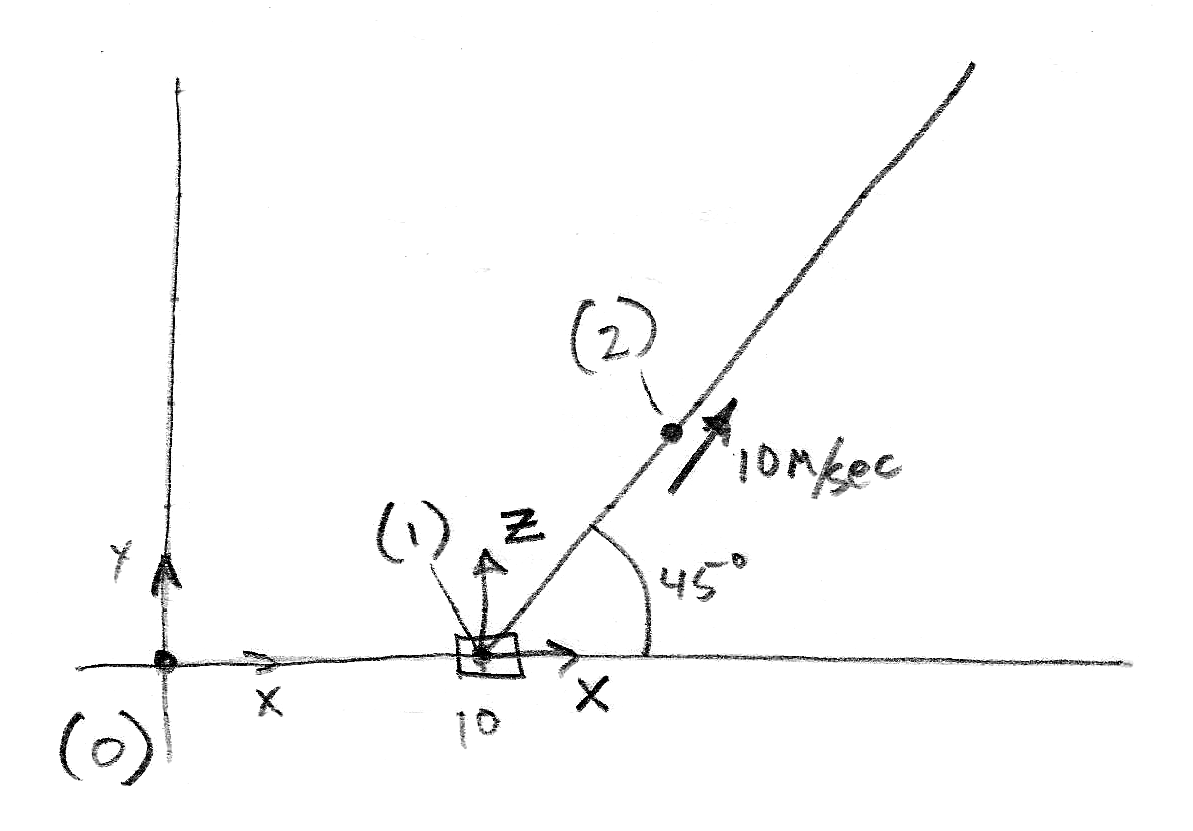 (2)
10M/sec
(1)
Z
Y
45°
X
X
10
(0)